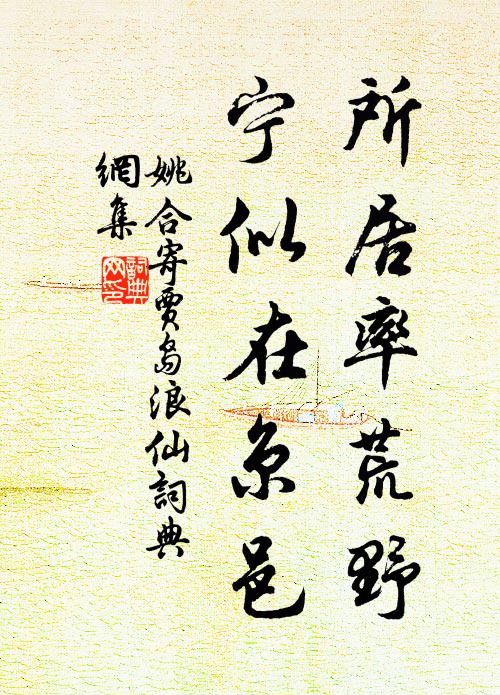 所居率荒野
宁似在京邑
姚合寄賈島浪仙詞典
網集
詞典
网印